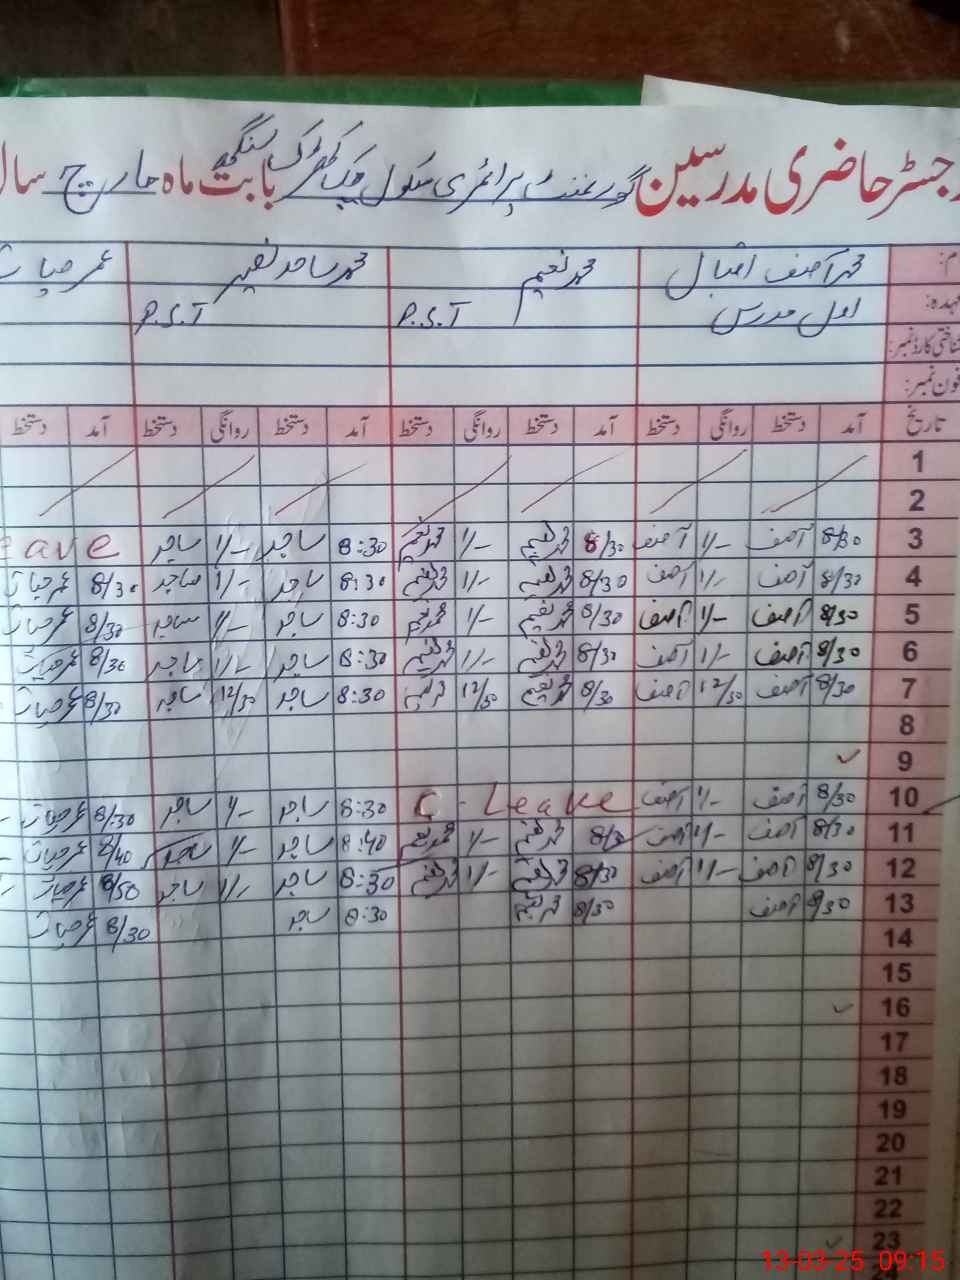 رجسٹر حاضری مدرسین گورنمنٹ پرائمری سکول چک کھڑک سنگھ بابت ماہ مارچ سال
نام: محمد آصف اقبال محمد نعیم محمد ساجد نصیر عمر حیات
عہدہ: اول مدرس P.S.T P.S.T
شناختی کارڈ نمبر:
فون نمبر:
تاریخ آمد دستخط روانگی دستخط آمد دستخط روانگی دستخط آمد دستخط روانگی دستخط آمد دستخط
1
2
3 8/30 آصف 1/- آصف 8/30 محمد نعیم 1/- محمد نعیم 8:30 ساجد 1/- ساجد eave
4 8/30 آصف 1/- آصف 8/30 محمد نعیم 1/- محمد نعیم 8:30 ساجد 1/- ساجد 8/30 عمر حیات
5 8/30 آصف 1/- آصف 8/30 محمد نعیم 1/- محمد نعیم 8:30 ساجد 1/- ساجد 8/30 عمر حیات
6 8/30 آصف 1/- آصف 8/30 محمد نعیم 1/- محمد نعیم 8:30 ساجد 1/- ساجد 8/30 عمر حیات
7 8/30 آصف 12/30 آصف 8/30 محمد نعیم 12/30 محمد نعیم 8:30 ساجد 12/30 ساجد 8/30 عمر حیات
8
9
10 8/30 آصف 1/- آصف C-Leake 8:30 ساجد 1/- ساجد 8/30 عمر حیات
11 8/30 آصف 1/- آصف محمد نعیم 1/- محمد نعیم 8:40 ساجد 1/- ساجد 8/40 عمر حیات
12 8/30 آصف 1/- آصف 8/30 محمد نعیم 1/- محمد نعیم 8:30 ساجد 1/- ساجد 8/50 عمر حیات
13 8/30 آصف 8/30 محمد نعیم 8:30 ساجد 8/30 عمر حیات
14
15
16
17
18
19
20
21
22
23
13-03-25 09:15